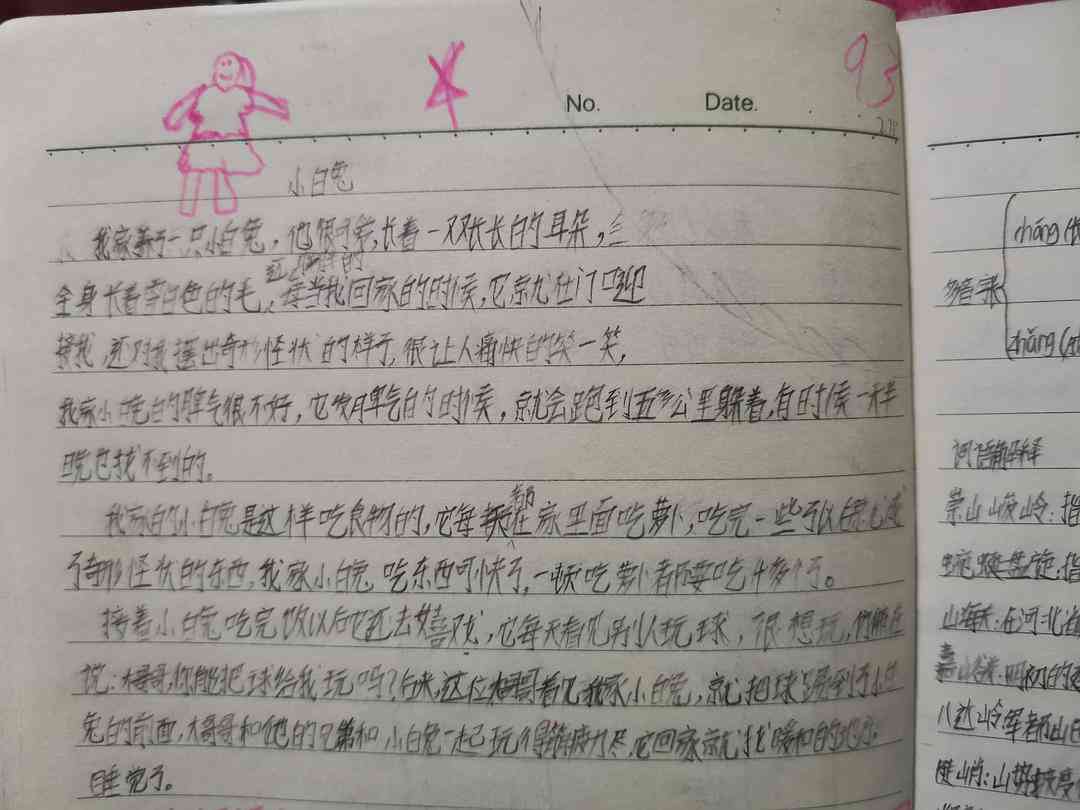 93
No. Date.
小白兔
我家养了一只小白兔,他很可爱,长着一双长长的耳朵,
全身长着雪白色的毛,每当我回家的时候,它就在门口迎
接我 还对我摆出奇形怪状的样子,很让人痛快的笑一笑,
我家小白兔的脾气很不好,它发脾气的时候,就会跑到五多公里躲着,有时候一样
晚也找不到的。
我家的小白兔是这样吃食物的,它每天都在家里面吃萝卜,吃完一些可以
奇形怪状的东西,我家小白兔吃东西可快了,一顿吃萝卜都要吃十多个了。
接着小白兔吃完饭以后它还去嬉戏,它每天看见别人玩球,很想玩,
说:大哥哥,你能把球给我玩吗?后来,这位大哥哥看见我家小白兔,就把球踢到了小白
兔的前面,大哥哥和他的兄弟和小白兔一起玩得精疲力尽,它回家就找暖和的地方
睡觉了。
多音字
zhǎng
词语解释
崇山峻岭:指
蜿蜒盘旋:指
山海关:在河北省
嘉峪关:明初的
八达岭:军都山
陡峭:山势坡度